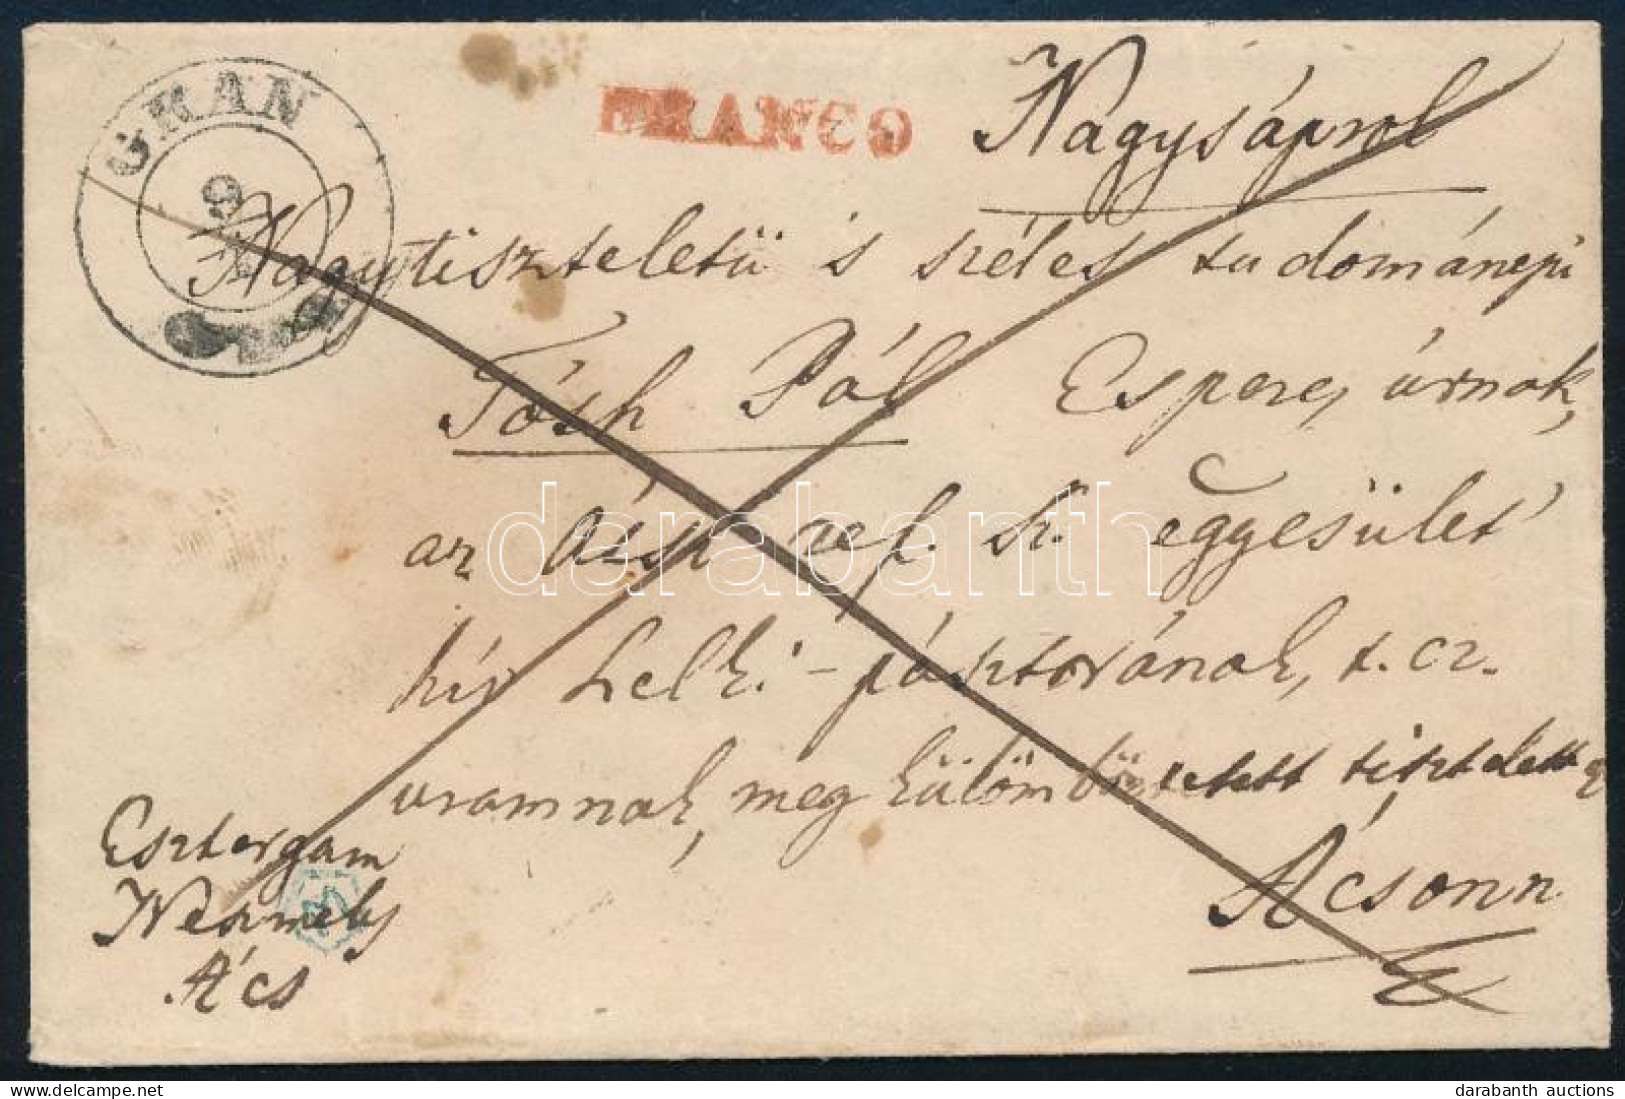 GRAN
FRANCO
Nagysápról
Nagytiszteletü s széles tudományú
Tóth Pál Esperes úrnak,
az ácsi ref. sz. egyesület
hív Lelki-pásztorának, t. cz.
uramnak, megkülömböztetett tisztelettel
Ácsonn
Esztergam
Neszmély
Ács
derabanth
darabanth auctions